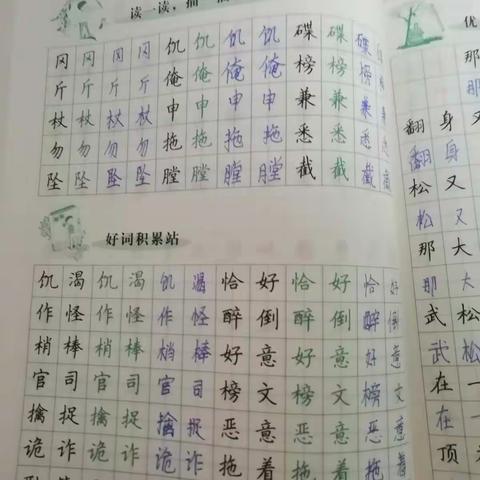 读一读，描一
冈冈冈冈饥饥饥饥碟碟碟
斤斤斤斤俺俺俺俺榜榜榜
杖杖杖杖申申申申兼兼兼
勿勿勿勿拖拖拖拖悉悉悉
坠坠坠坠膛膛膛膛截截截截
好词积累站
饥渴饥渴饥渴恰好恰好恰好
作怪作怪作怪醉倒醉倒醉倒
梢棒梢棒梢棒好意好意好意
官司官司官司榜文榜文榜文
擒捉擒捉擒捉恶意恶意恶意
诡诈诡诈诡诈拖着拖着拖着
优
那
那
翻身又
翻身
松又
松又
那大
那大
武松
武松
在一
在一
顶